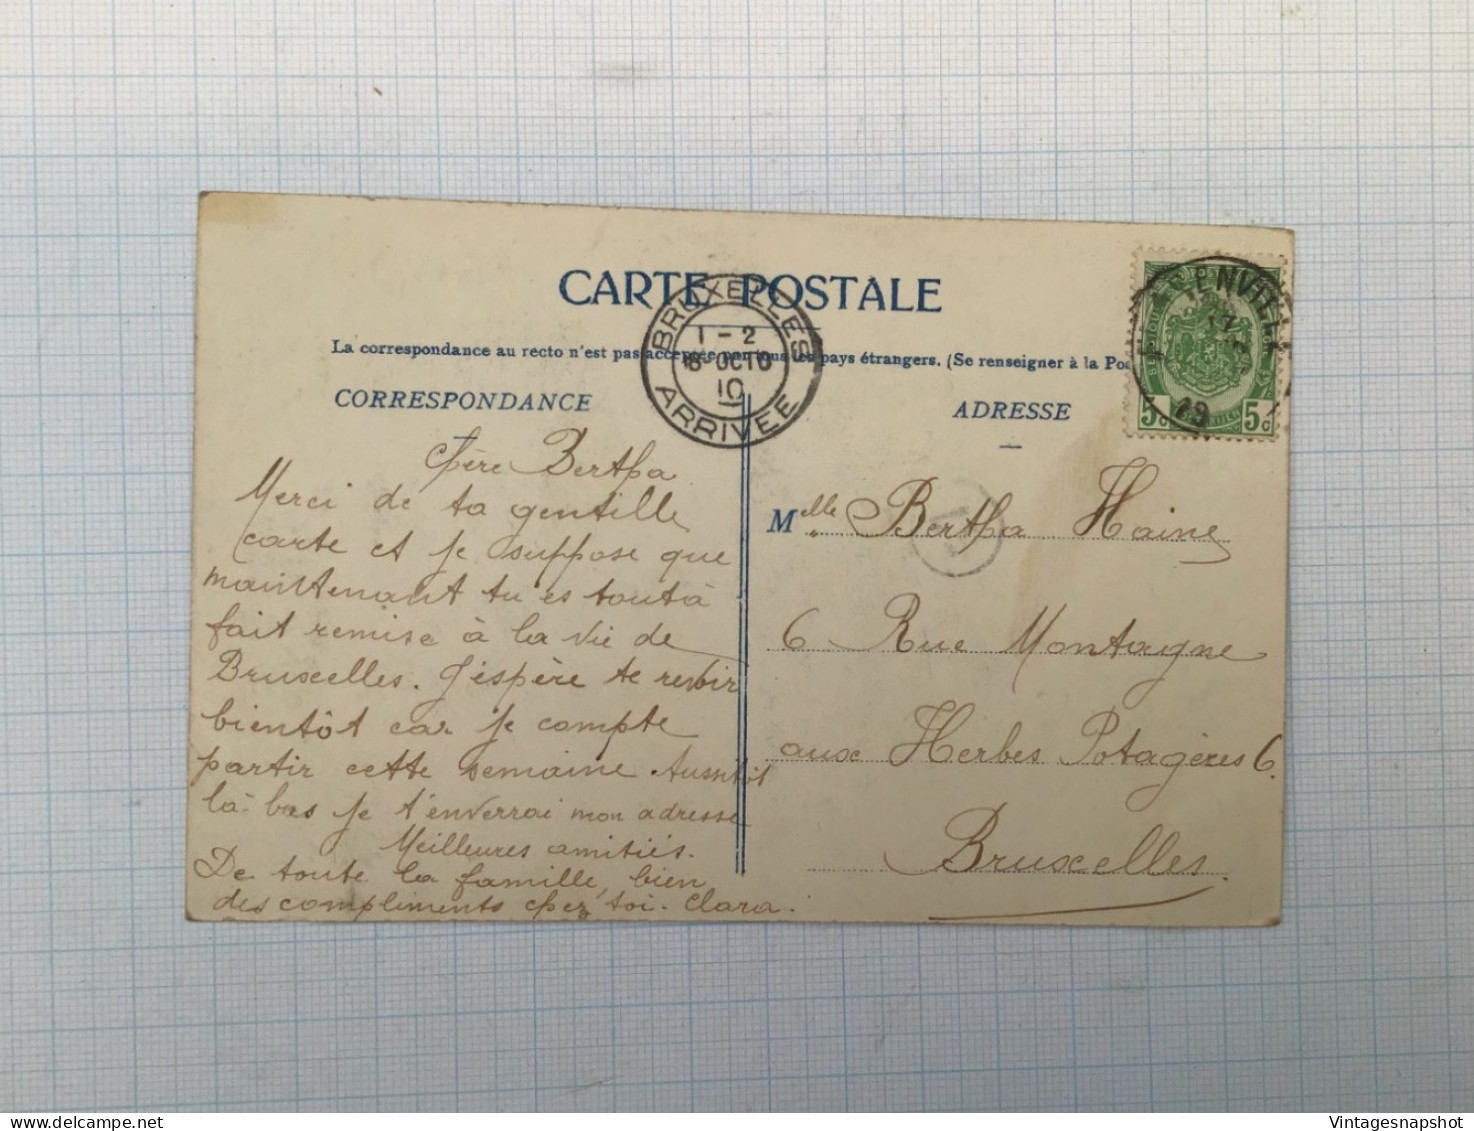 CARTE POSTALE
La correspondance au recto n'est pas acceptée par tous les pays étrangers. (Se renseigner à la Po
CORRESPONDANCE
ADRESSE
BRUXELLES
1 - 2
OCTO
10
ARRIVEE
ENVILLE
19
5c 5c
Chère Bertha
Merci de ta gentille
carte et je suppose que
maintenant tu es tout à
fait remise à la vie de
Bruxelles. J'espère te revoir
bientôt car je compte
partir cette semaine. Aussitôt
là-bas je t'enverrai mon adresse
Meilleures amitiés.
De toute la famille, bien
des compliments chez toi. Clara.
Melle Bertha Haine
6 Rue Montagne
aux Herbes Potagères 6.
Bruxelles.
Vintagesnapshot